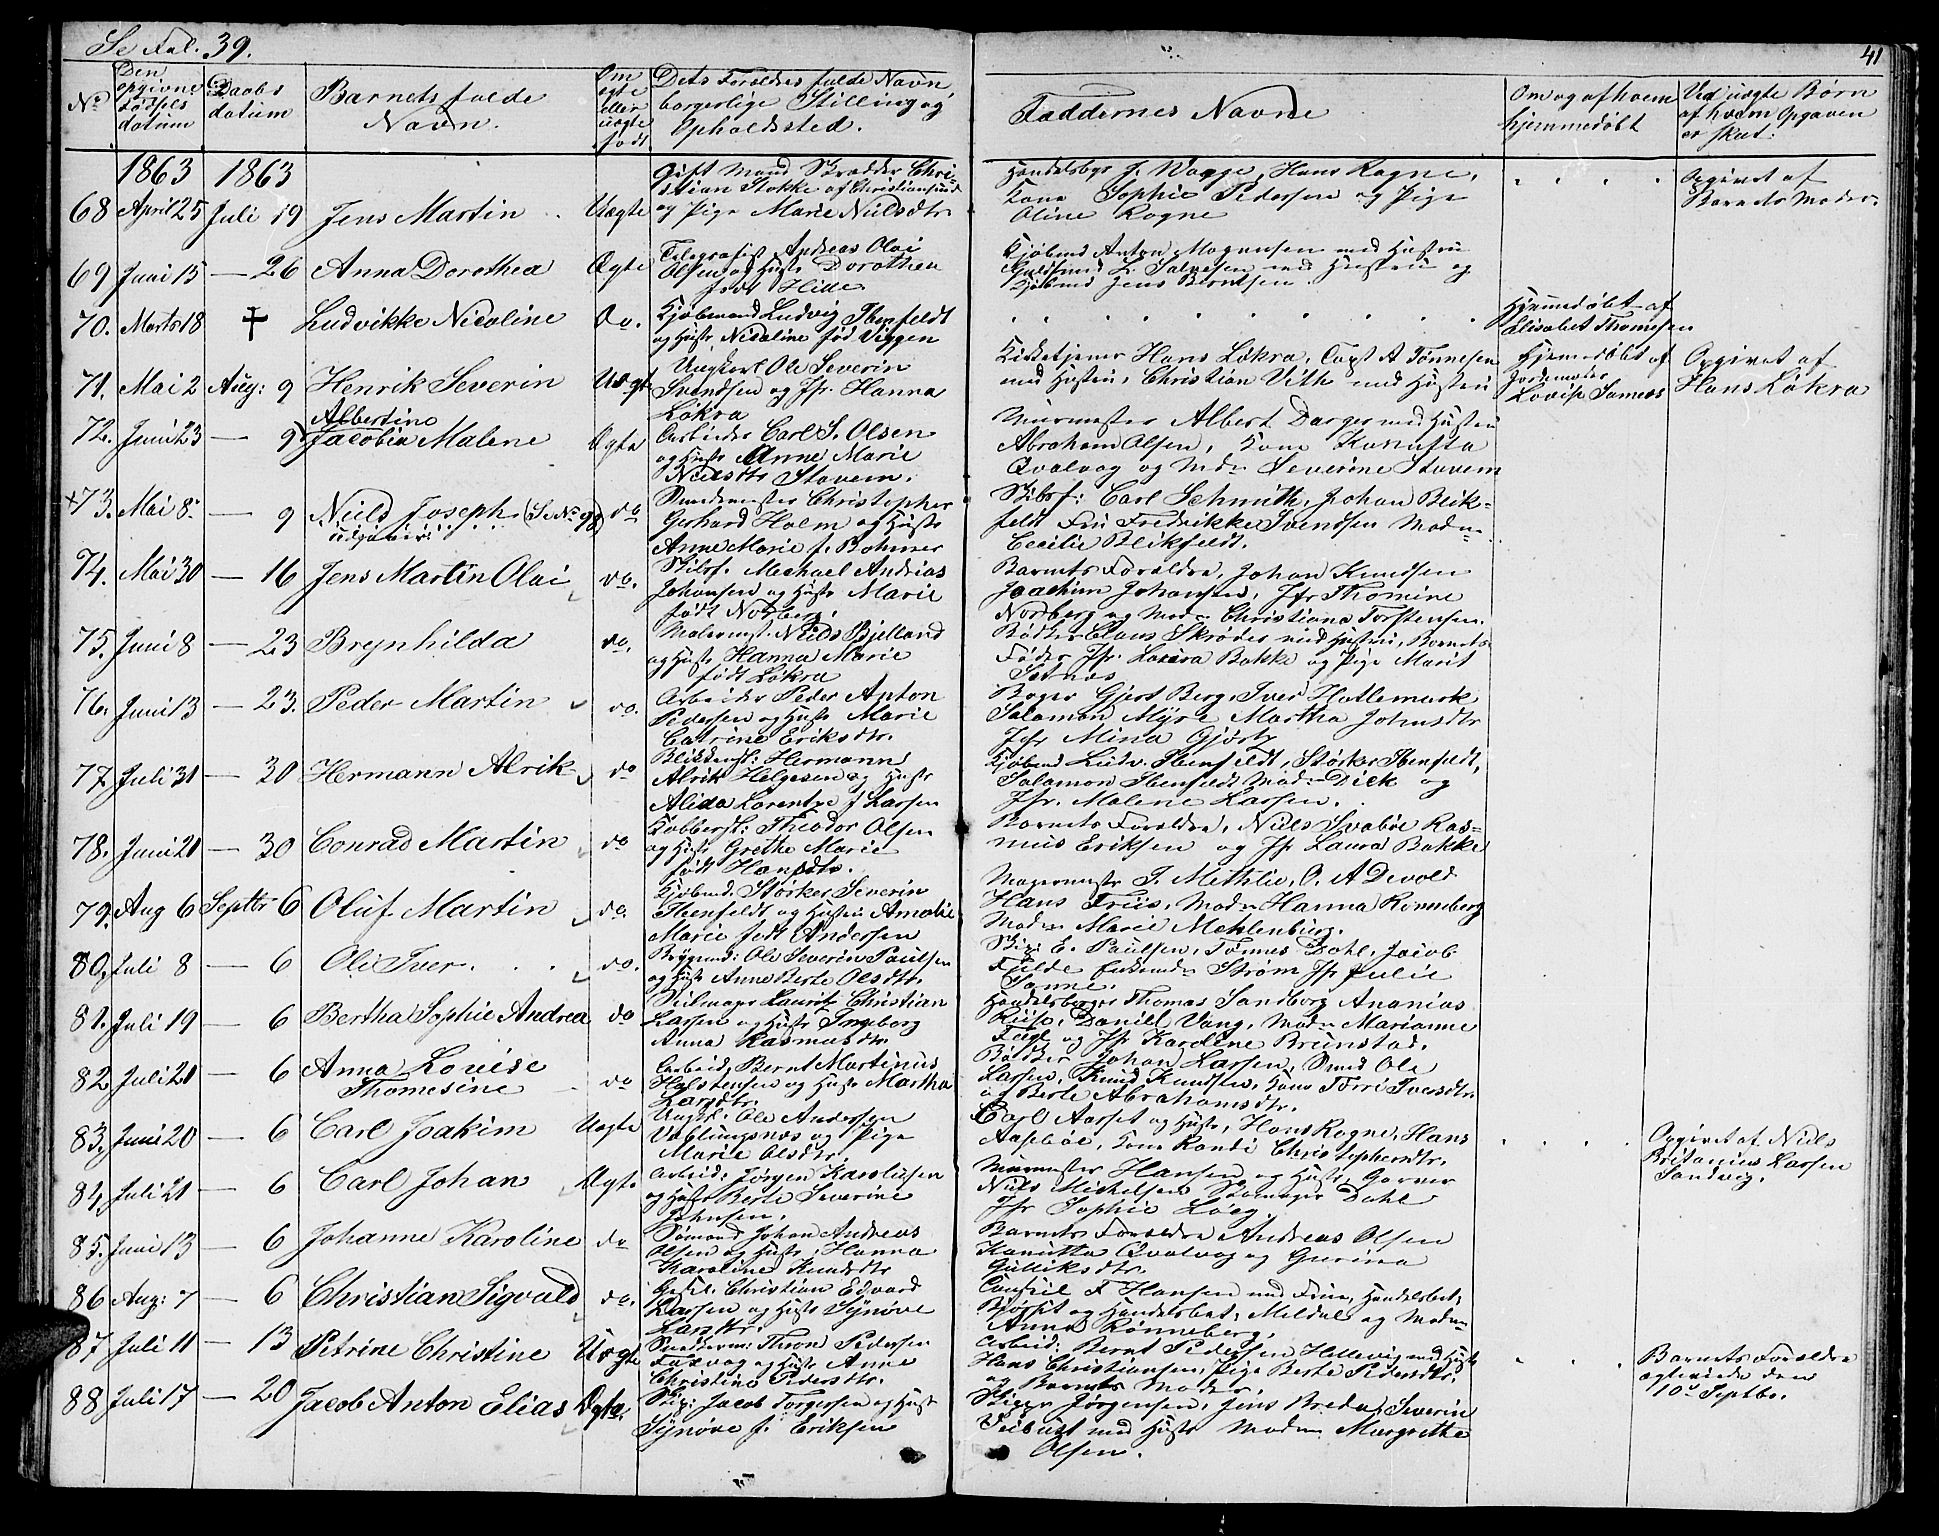 Se Fol. 39.
41
No
Den opgivne fødsels datum
Daabs datum
Barnets fulde Navn.
Om ægte eller uægte født.
Dets Forældres fulde Navn, borgerlige Stilling og Opholdssted.
Faddernes Navne
Om og af hvem hjemmedøbt
Ved uægte Børn af hvem Opgaven er skeet.
1863 1863
68 April 25 Juli 19 Jens Martin Uægte
Gift Mand Skrædder Christian Stokke af Christiansund
og Pige Marie Nielsdtr
Handelsbgr J. Wagge, Hans Rogne,
Kone Sophie Pedersen og Pige
Oline Rogne
Opgivet af
Barnets Moder
69 Juni 15 — 26 Anna Dorothea Ægte
Telegrafist Andreas Olai
Olsen og Hustr Dorothea
født Hide
Kjøbmd Anton Mogensen med Hustru
Guldsmed L. Salvesen med Hustru og
Kjøbmd Jens Berntsen.
70. Marts 18 † Ludvikke Nicoline do.
Kjøbmand Ludvig Ibenfeldt
og Hustr Nicoline fød Viggen
Hjemmedøbt af
Elisabet Thomesen
71. Mai 2 Aug: 9 Henrik Severin Uægte
Ungkarl Ole Severin
Svendsen og Jfr. Hanna
Løkra
Kirketjener Hans Løkra, Capt A Tønnesen
med Hustru, Christian Vith med Hustru
Hjemmedøbt af
Jordemoder
Lovise Samess
Opgivet af
Hans Løkra
72. Juni 23 — 9 Albertine
Jacobia Malene Ægte
Arbeider Carl S. Olsen
og Hustr Anne Marie
Nielsdtr Stavem.
Muurmester Albert Darger med Hustru
Abraham Olsen, Kone Kanutta
Qvalvag og Mdm Severine Stavem
+73. Mai 8 — 9 Niels Joseph (Se No 98)
udgaaer do
Bundtmester Christopher
Gerhard Holm og Hustr
Anne Marie f. Bohmer
Skibsf: Carl Schmith, Johan Blik-
feldt Fru Fredrikke Svendsen Mdm
Cecilie Blikfeldt.
74. Mai 30 — 16 Jens Martin Olai do.
Skibsf. Michael Andreas
Johansen og Hustr Marie
født Norberg.
Barnets Forældre, Johan Knudsen
Joachim Johansen, Jfr Thomine
Norberg og Mdm Christiane Torstensen.
75. Juni 8 — 23 Brynhilda do.
Malermst. Niels Bjelland
og Hustr Hanna Marie
født Løkra
Bødker Claus Skrøder med Hustru, Barnets
Fader Jfr. Lovisa Bakke og Pige Marit
Setnes
76. Juni 13 — 23. Peder Martin do.
Arbeider Peder Anton
Pedersen og Hustr Marie
Catrine Eriksdtr.
Bager Gjert Berg, Iver Hatlemark
Salamon Myre Martha Johnsdtr
Jfr Mina Gjørtz
77. Juli 31 — 30 Hermann Alrik do
Blikkensl: Hermann
Alrik Helgesen og Hustr
Alida Lorentze f Larsen
Kjøbmd Ludv. Ibenfeldt, Størker Ibenfeldt,
Salamon Ibenfeldt Mdm Dick og
Jfr. Malene Larsen.
78. Juni 21 — 30 Conrad Martin do
Kobbersl: Theodor Olsen
og Hustr Grethe Marie
født Hansdtr.
Barnets Forældre, Niels Svabøe Ras-
mus Eriksen og Jfr Laura Bakke
79. Aug 6 Septbr 6 Oluf Martin do.
Kjøbmd: Størker Severin
Ibenfeldt og Hustru Amalie
Marie født Andersen
Magermestr J. Methlie, O. A Devold
Hans Friis, Mdm Hanna Rønneberg
Mdm Marie Mehlenburg.
80. Juli 8 — 6 Ole Iver do.
Brygmd: Ole Severin Paulsen
og Hustr Anne Berte Olsdtr.
Skip: E. Paulsen, Tønnes Dahl, Jacob
Fjelde Enkemdm Strøm Jfr Julie
Sanne.
81. Juli 19 — 6 Bertha Sophie Andrea do
Seilmager Lauritz Christian
Larsen og Hustr Ingeborg
Anna Rasmusdtr
Handelsborger Thomas Sandborg Ananias
Riise, Daniel Vang, Mdm Marianne
Fugl og Jfr Karoline Brunstad.
82. Juli 21 — 6 Anna Lovise
Thomesine do
Arbeid. Bernt Martinus
Halstensen og Hustr Martha
Larsdtr.
Bødker Johan Larsen, Smed Ole
Larsen, Knud Knudsen, Kone Torri Iversdtr
og Berte Abrahamsdtr.
83. Juni 20 — 6 Carl Joakim Uægte
Ungkl: Ole Andersen
Veblungsnæs og Pige
Marie Olsdtr.
Carl Aarset og Hustr, Hans Rogne, Hans
Aasbøe, Kone Randi Christophersdtr.
Opgivet af Niels
Britanius Larsen
Sandvig.
84. Juli 21 — 6 Carl Johan Ægte
Arbeid: Jørgen Karolusen
og Hustr Berte Severine
Johnsen.
Murmester Hansen og Hustr, Garver
Niels Michelsen Skomager Dahl
Jfr Sophie Løeg.
85. Juni 13 — 6 Johanne Karoline do
Sømand Johan Andreas
Olsen og Hustr, Hanna
Karoline Knudsdtr
Barnets Forældre Andreas Olsen
Kanutta Qvalvag og Gurina
Gulliksdtr.
86 Aug: 7 — 6 Christian Sigvald do.
Gesel. Christian Edvard
Larsen og Hustr Synøve
Larsdtr.
Consul F Hansen med Frue, Handelsbet,
Bjørset og Handelsbet, Meldal og Mdm
Anna Rønneberg.
87 Juli 11 — 13 Petrine Christine Uægte
Snedkerm: Thore Pedersen
Fuxvog og Hustr Anne
Christine Pedersdtr.
Arbeid: Bernt Pedersen Hellevig med Hustr
Hans Christiansen, Pige Berte Pedersdtr.
og Barnets Moder.
Barnets Forældre
ægteviede den
10de Septbr.
88 Juli 17 — 20 Jacob Anton Elias Ægte.
Skip: Jacob Torgersen og Hustr
Synøve f. Eriksen
Skippr Jørgensen, Jens Breda, Severin
Vebust med Hustr Mdm Margrethe
Olsen.